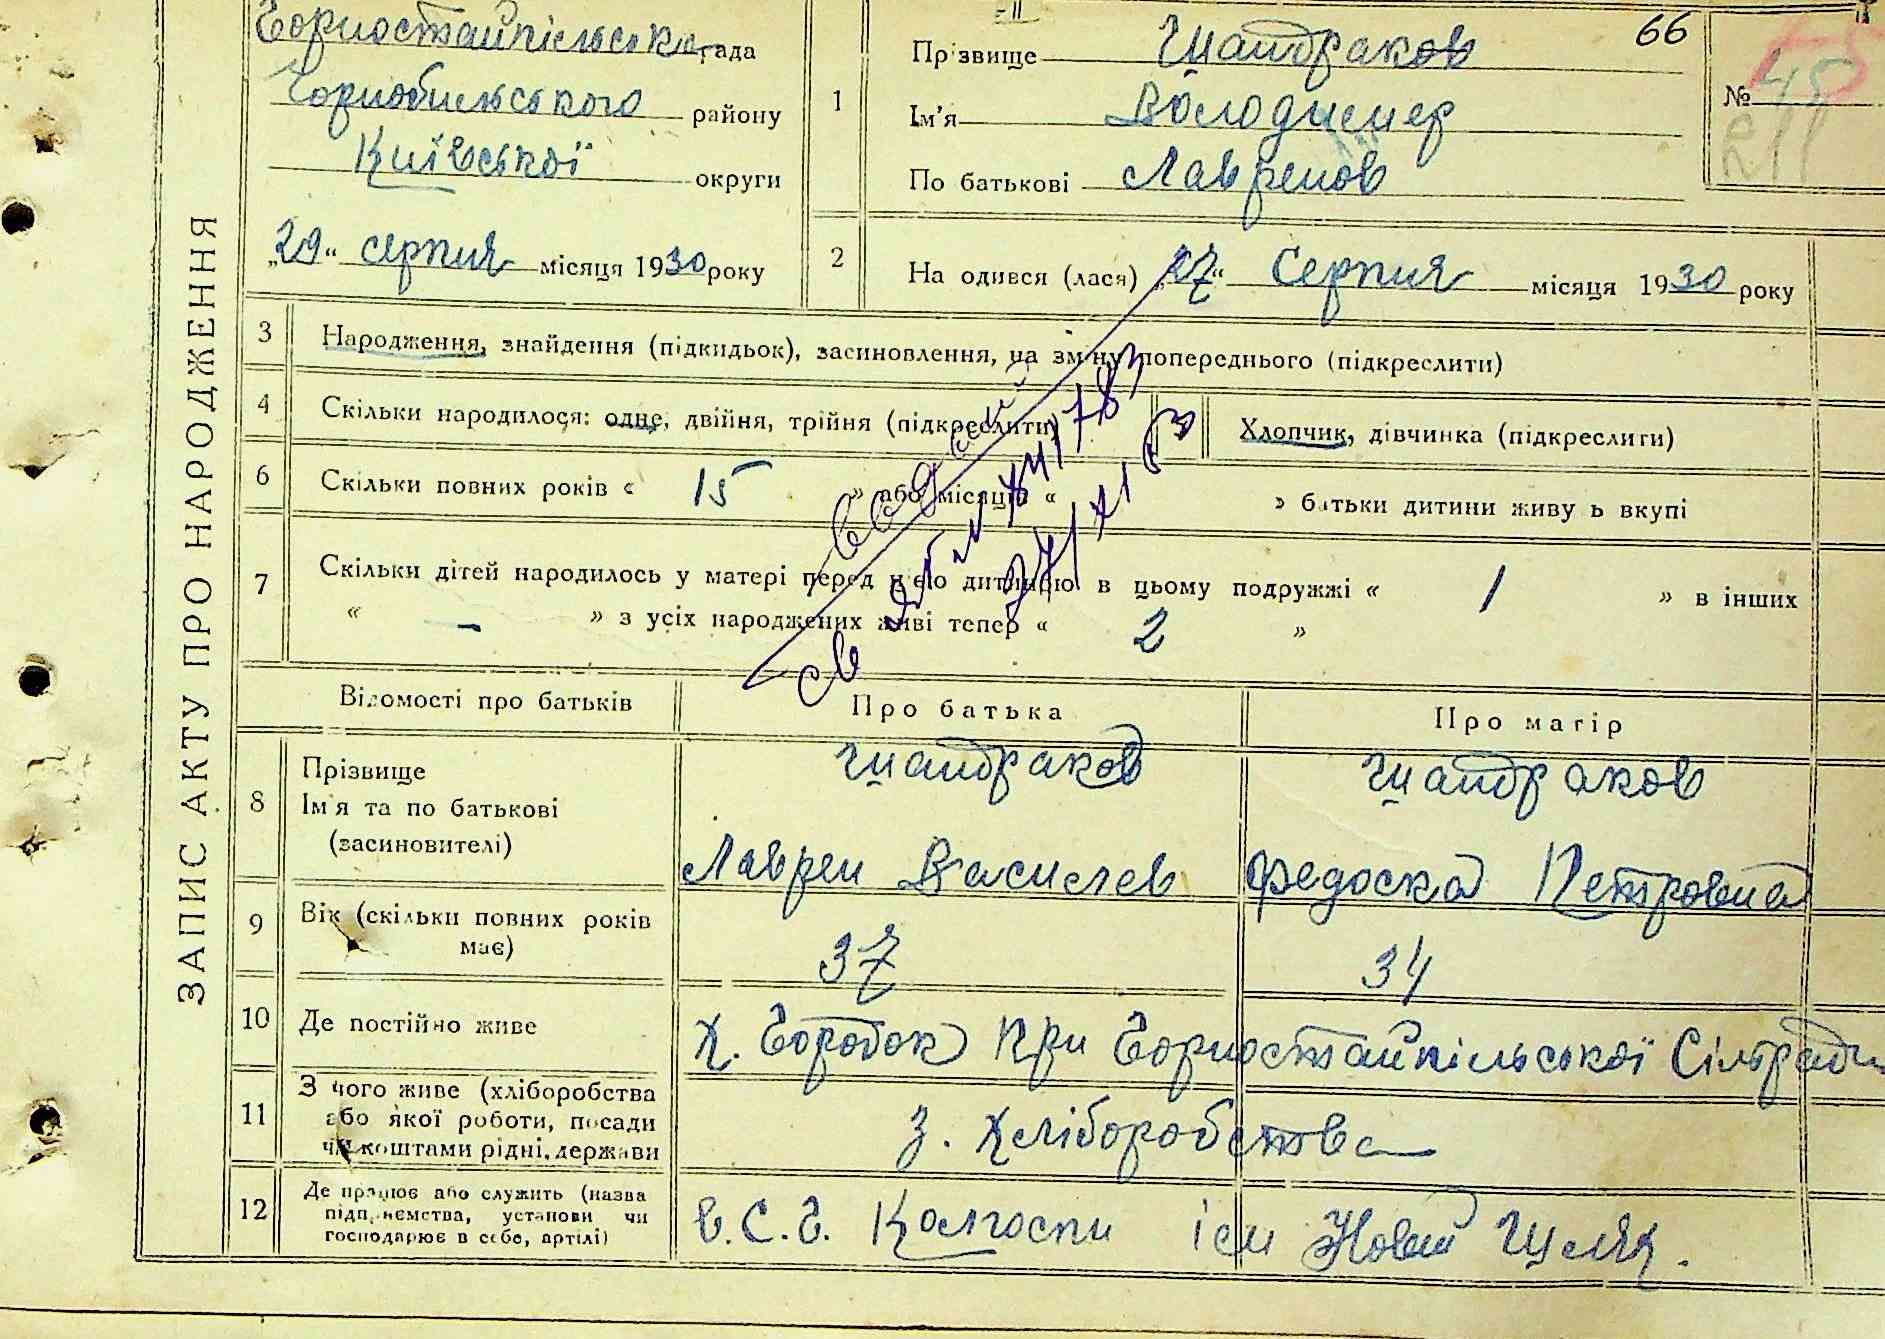 66
Горностайпільська рада
Чорнобильського району
Київської округи
„29“ серпня місяця 1930 року
ЗАПИС АКТУ ПРО НАРОДЖЕННЯ
1 Прізвище Шандраков
Ім'я Володимер
По батькові Лавренов
№ 45
2 На одився (лася) „27“ Серпня місяця 1930 року
3 Народження, знайдення (підкидьок), засиновлення, на зміну попереднього (підкреслити)
4 Скільки народилося: одне, двійня, трійня (підкреслити)
Хлопчик, дівчинка (підкреслити)
6 Скільки повних років « 15 » або місяців « » батьки дитини живу ь вкупі
7 Скільки дітей народилось у матері перед цією дитиною в цьому подружжі « 1 » в інших
« - » з усіх народжених живі тепер « 2 »
Відомості про батьків Про батька Про матір
8 Прізвище Шандраков Шандраков
Ім'я та по батькові
(засиновителі) Лаврен Василев Федоска Петровна
9 Вік (скільки повних років
має) 37 34
10 Де постійно живе Х. Городок При Горностайпільської Сільради
11 З чого живе (хліборобства
або якої роботи, посади
чи коштами рідні, держави з. Хліборобства
12 Де працює або служить (назва
підприємства, установи чи
господарює в себе, артілі) в. С. Г. Колгоспи ім Новий Шлях.